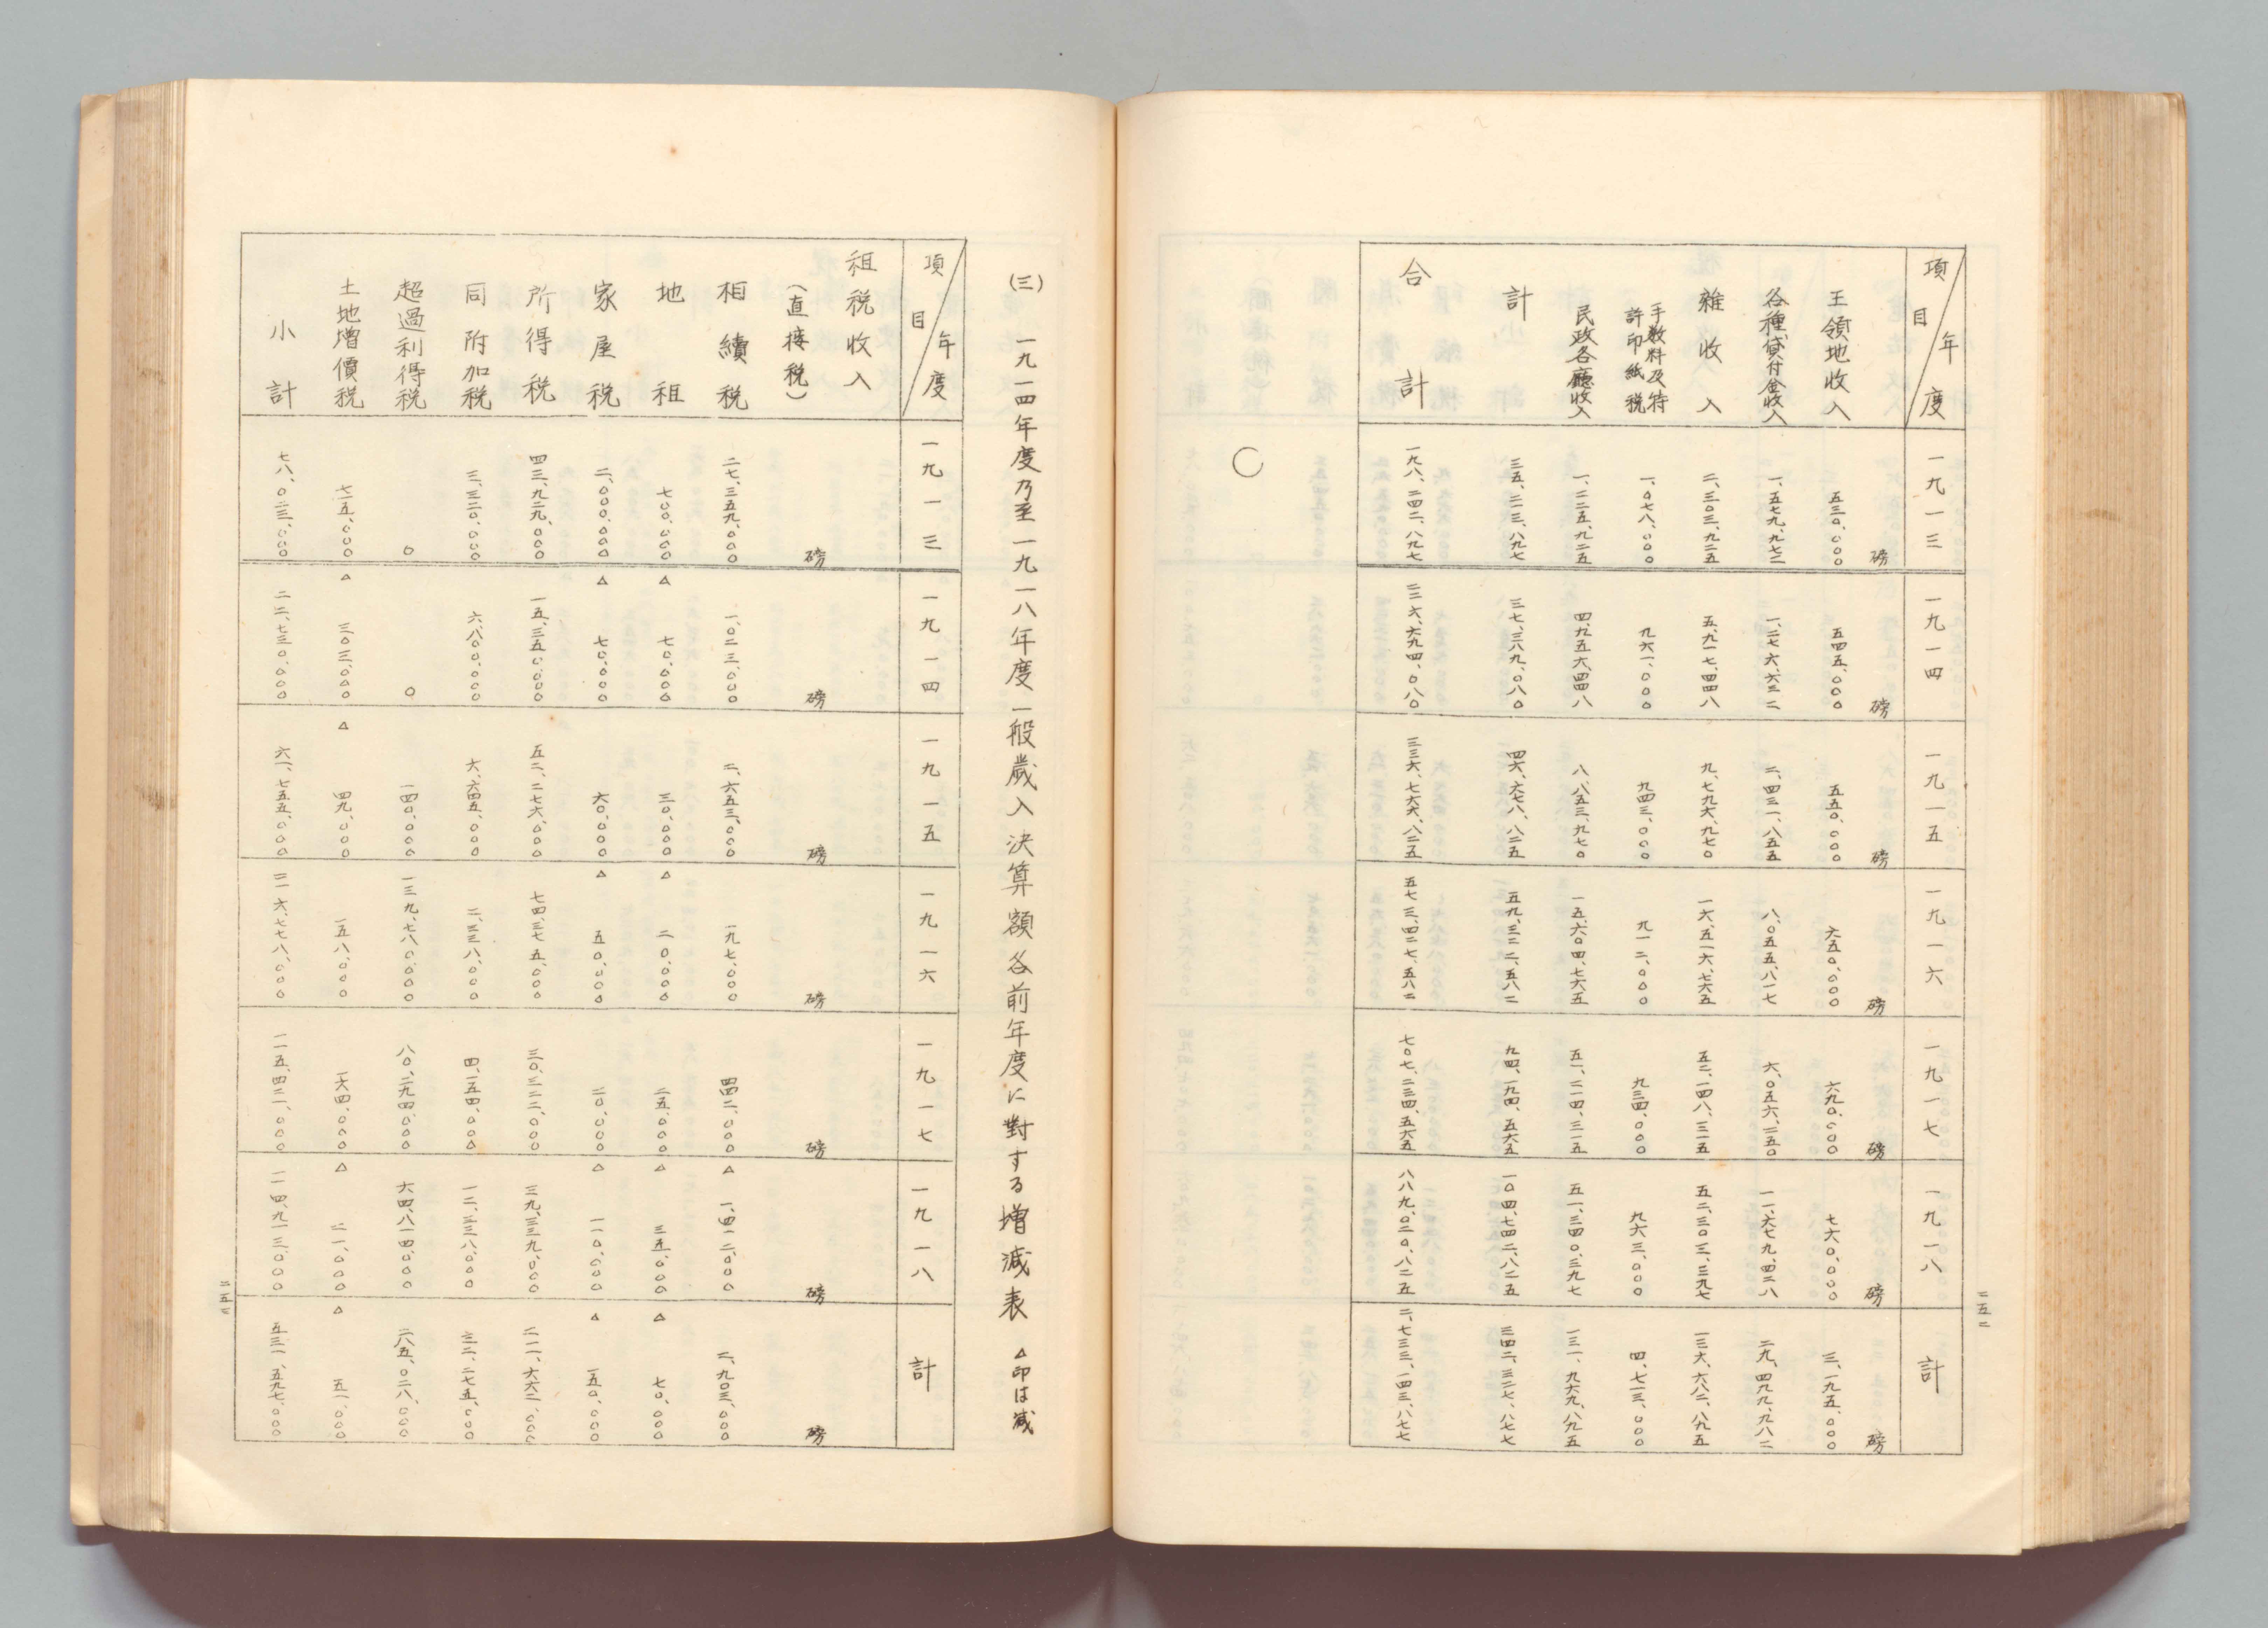 項目 年度 一九一三 一九一四 一九一五 一九一六 一九一七 一九一八 計
磅 磅 磅 磅 磅 磅 磅
王領地收入 五三〇、〇〇〇 五四五、〇〇〇 五五〇、〇〇〇 六五〇、〇〇〇 六九〇、〇〇〇 七六〇、〇〇〇 三、一九五、〇〇〇
各種貸付金收入 一、五七九、九七二 一、二七六、六三二 二、四三一、八五五 八、〇五五、八一七 六、〇五六、二五〇 一一、六七九、四二八 二九、四九九、九八二
雜收入 二、三〇三、九二五 五、九一七、四四八 九、七九六、九七〇 一六、五一六、七六五 五二、一四八、三一五 五二、三〇三、三九七 一三六、六八二、八九五
手数料及特許印紙税 一、〇七八、〇〇〇 九六一、〇〇〇 九四三、〇〇〇 九一二、〇〇〇 九三四、〇〇〇 九六三、〇〇〇 四、七一三、〇〇〇
民政各廳收入 一、二二五、九二五 四、九五六、四四八 八、八五三、九七〇 一五、六〇四、七六五 五一、二一四、三一五 五一、三四〇、三九七 一三一、九六九、八九五
計 三五、二一三、八九七 三七、三八九、〇八〇 四六、六七八、八二五 五九、三二二、五八二 九四、一九四、五六五 一〇四、七四二、八二五 三四二、三二七、八七七
合計 一九八、二四二、八九七 二二六、六九四、〇八〇 三三六、七六六、八二五 五七三、四二七、五八二 七〇七、二三四、五六五 八八九、〇二〇、八二五 二、七三三、一四三、八七七
二五二
(三) 一九一四年度乃至一九一八年度一般歲入決算額各前年度に對する增減表 △印は減
項目 年度 一九一三 一九一四 一九一五 一九一六 一九一七 一九一八 計
租税收入
(直接税) 磅 磅 磅 磅 磅 磅 磅
相續税 二七、三五九、〇〇〇 一、〇二三、〇〇〇 二、六五三、〇〇〇 一九七、〇〇〇 四四二、〇〇〇 △ 一、四一二、〇〇〇 二、九〇三、〇〇〇
地租 七〇〇、〇〇〇 △ 七〇、〇〇〇 三〇、〇〇〇 △ 二〇、〇〇〇 二五、〇〇〇 △ 三五、〇〇〇 △ 七〇、〇〇〇
家屋税 二、〇〇〇、〇〇〇 △ 七〇、〇〇〇 六〇、〇〇〇 △ 五〇、〇〇〇 二〇、〇〇〇 △ 一一〇、〇〇〇 △ 一五〇、〇〇〇
所得税 四三、九二九、〇〇〇 一五、三五〇、〇〇〇 五二、二七六、〇〇〇 七四、三七五、〇〇〇 三〇、三二二、〇〇〇 三九、三三九、〇〇〇 二一一、六六二、〇〇〇
同附加税 三、三二〇、〇〇〇 六、八〇〇、〇〇〇 六、六四五、〇〇〇 二、三三八、〇〇〇 四、一五四、〇〇〇 一二、三三八、〇〇〇 三二、二七五、〇〇〇
超過利得税 〇 〇 一四〇、〇〇〇 一三九、七八〇、〇〇〇 八〇、二九四、〇〇〇 六四、八一四、〇〇〇 二八五、〇二八、〇〇〇
土地增價税 七一五、〇〇〇 △ 三〇三、〇〇〇 △ 四九、〇〇〇 一五八、〇〇〇 一六四、〇〇〇 △ 二一、〇〇〇 △ 五一、〇〇〇
小計 七八、〇二三、〇〇〇 二二、七三〇、〇〇〇 六一、七五五、〇〇〇 二一六、七七八、〇〇〇 一一五、四二一、〇〇〇 一一四、九一三、〇〇〇 五三一、五九七、〇〇〇
二五三